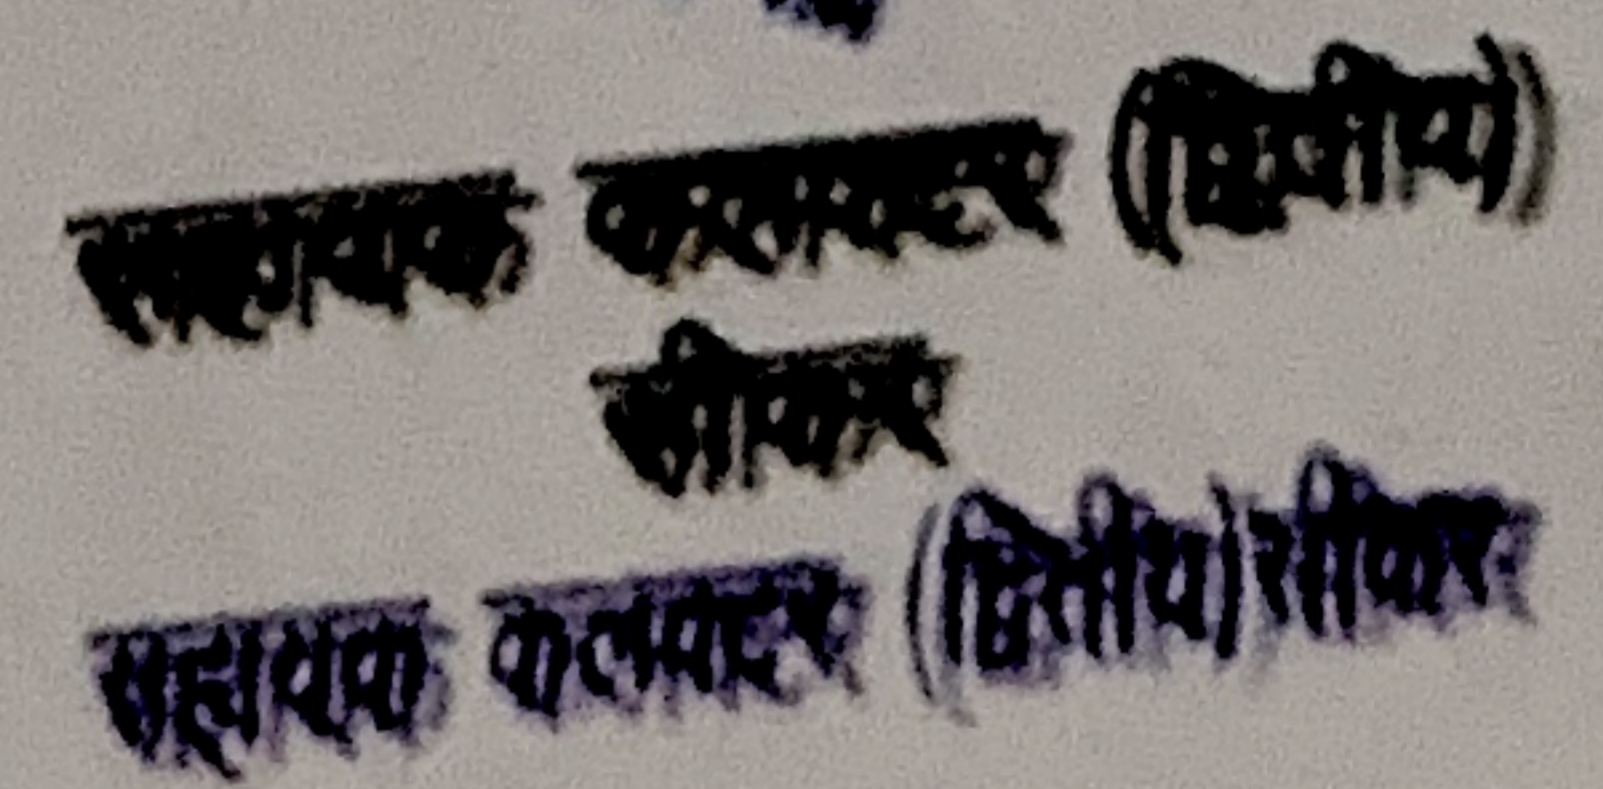 सहायक कलक्टर (द्वितीय)
सीकर
सहायक कलक्टर (द्वितीय) सीकर